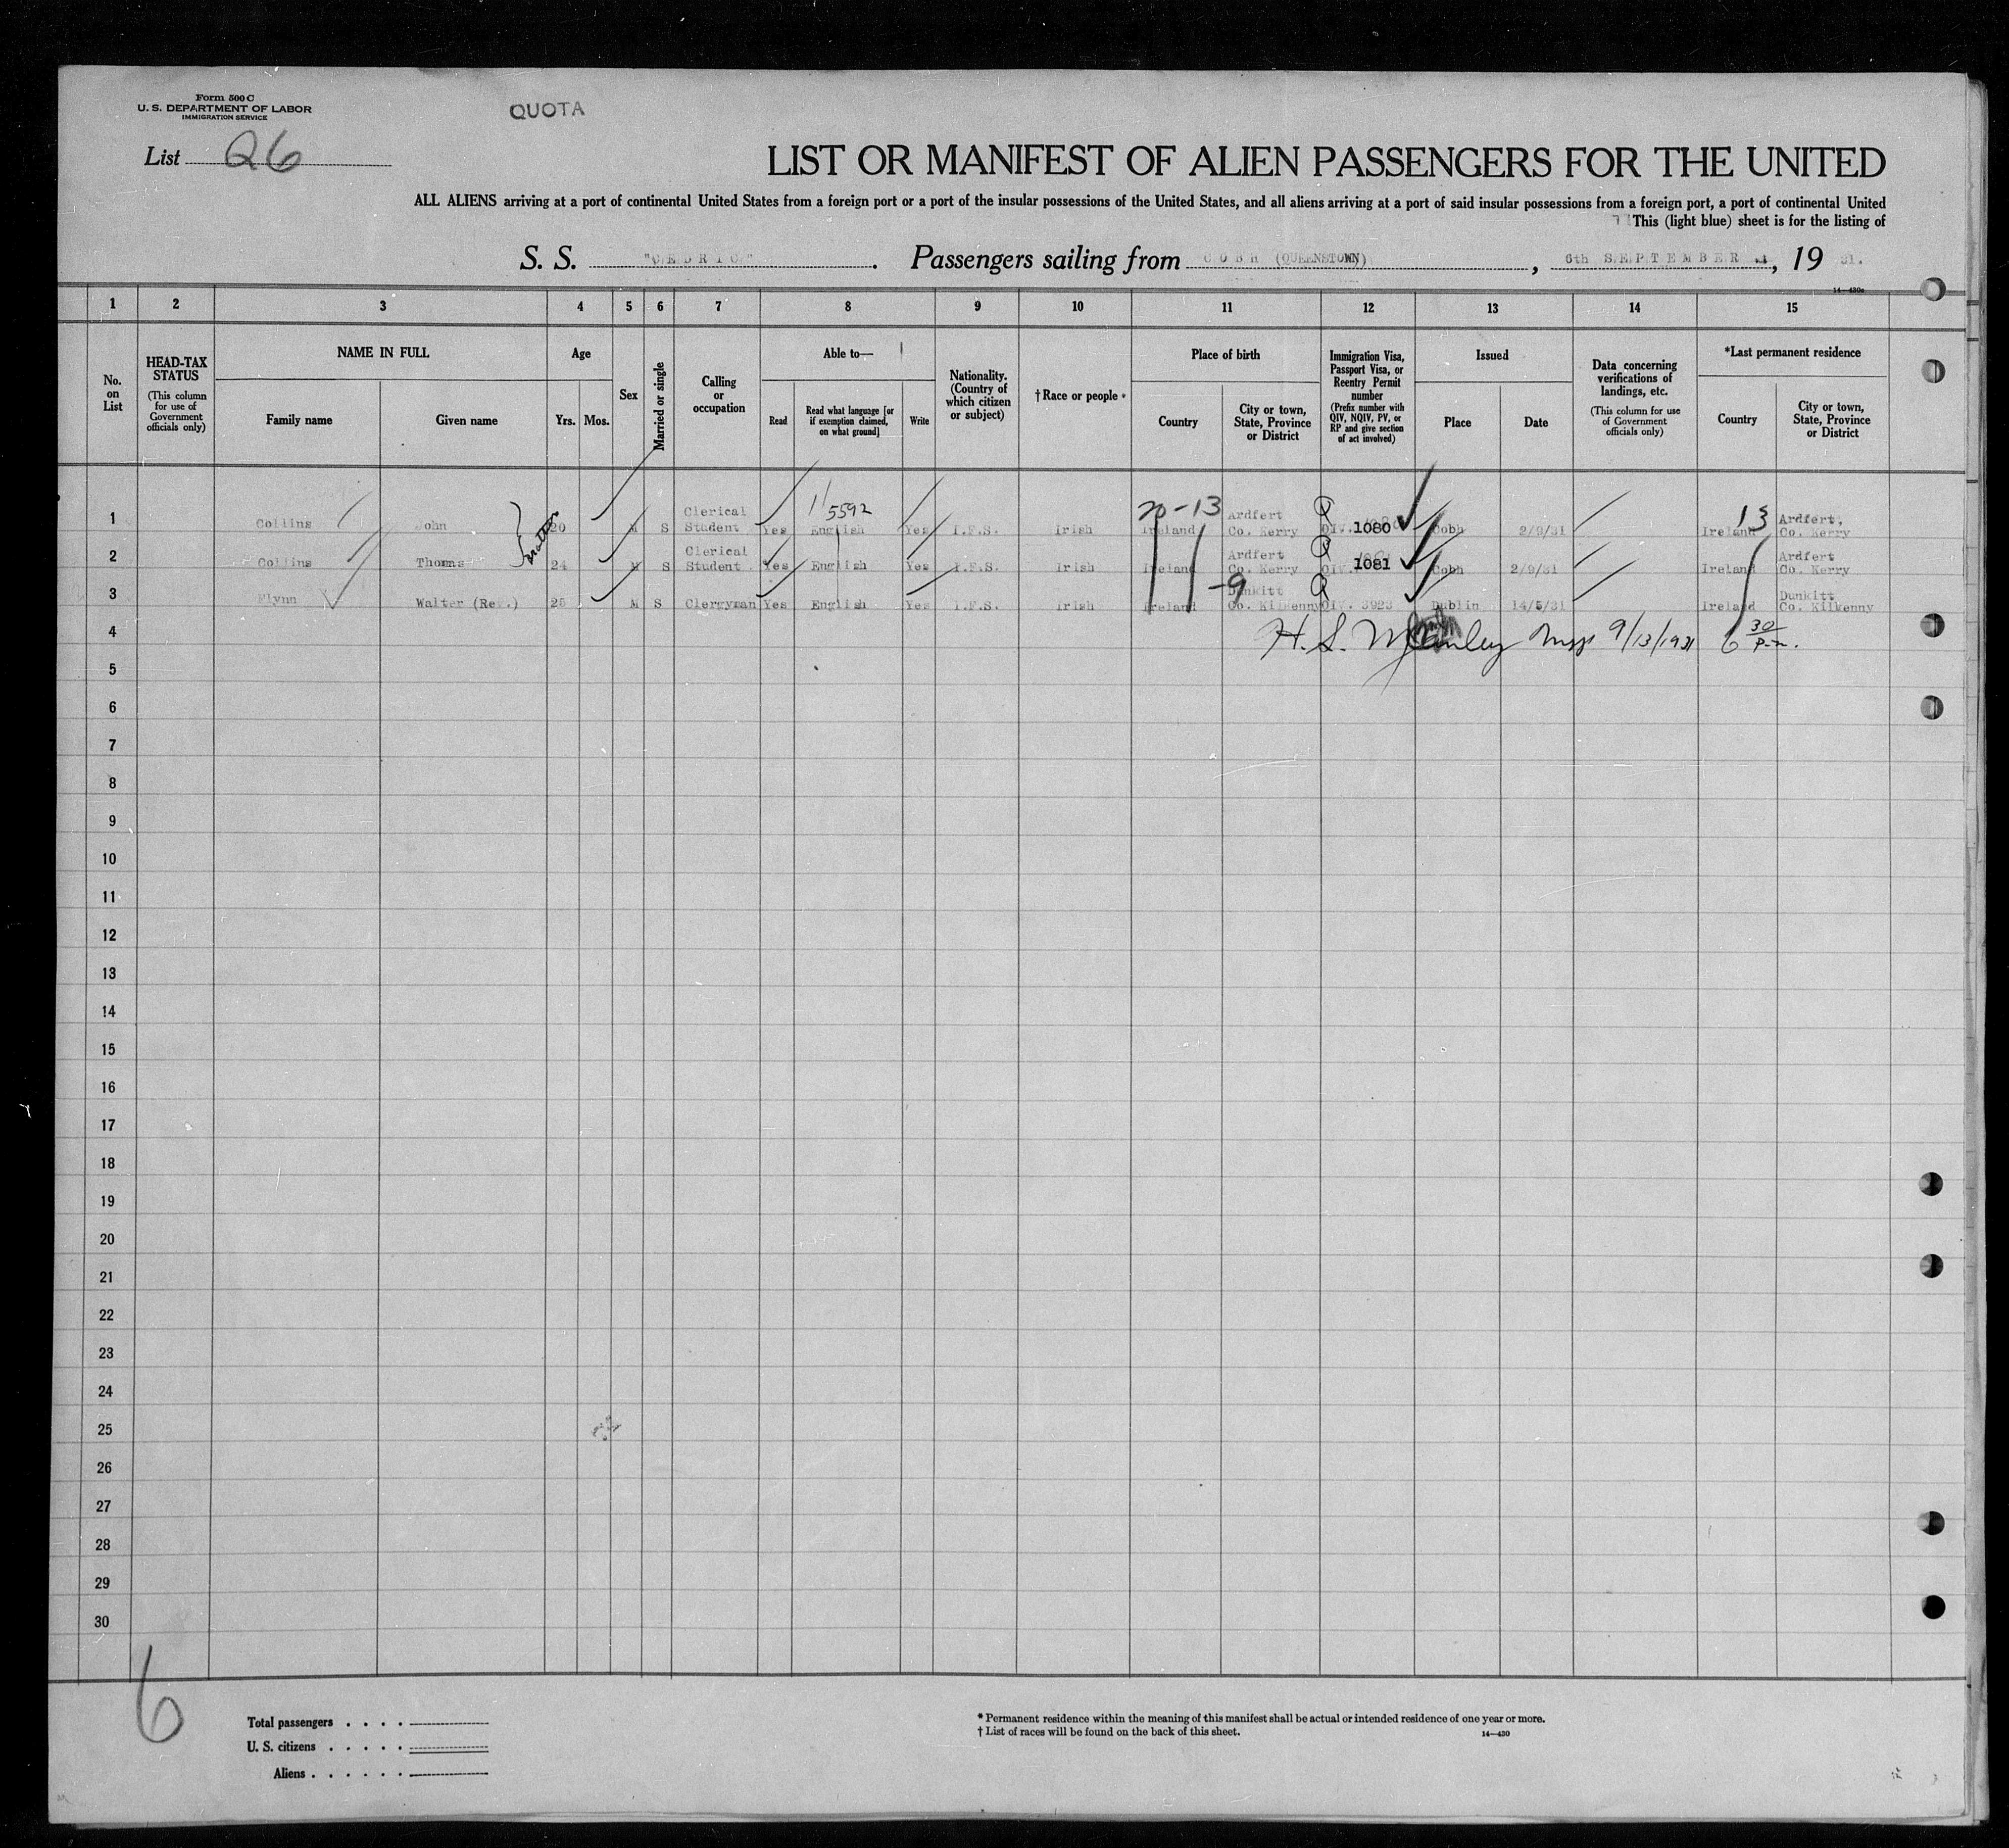 Form 500 C
U. S. DEPARTMENT OF LABOR
IMMIGRATION SERVICE
QUOTA
List 26
LIST OR MANIFEST OF ALIEN PASSENGERS FOR THE UNITED
ALL ALIENS arriving at a port of continental United States from a foreign port or a port of the insular possessions of the United States, and all aliens arriving at a port of said insular possessions from a foreign port, a port of continental United
This (light blue) sheet is for the listing of
S. S. "CEDRIC". Passengers sailing from COBH (QUEENSTOWN), 6th SEPTEMBER, 19 31.
14—430c
1 2 3 4 5 6 7 8 9 10 11 12 13 14 15
No. on List
HEAD-TAX STATUS (This column for use of Government officials only)
NAME IN FULL
Family name
Given name
Age
Yrs. Mos.
Sex
Married or single
Calling or occupation
Able to—
Read
Read what language [or if exemption claimed, on what ground]
Write
Nationality. (Country of which citizen or subject)
† Race or people
Place of birth
Country
City or town, State, Province or District
Immigration Visa, Passport Visa, or Reentry Permit number (Prefix number with QIV, NQIV, PV, or RP and give section of act involved)
Issued
Place
Date
Data concerning verifications of landings, etc. (This column for use of Government officials only)
*Last permanent residence
Country
City or town, State, Province or District
1 Collins John 20 M S Clerical Student Yes English Yes I.F.S. Irish Ireland Ardfert Co. Kerry QIV. 1080 Cobh 2/9/31 Ireland Ardfert, Co. Kerry
5592
20-13
13
brothers
2 Collins Thomas 24 M S Clerical Student Yes English Yes I.F.S. Irish Ireland Ardfert Co. Kerry QIV. 1081 Cobh 2/9/31 Ireland Ardfert Co. Kerry
-9
3 Flynn Walter (Rev.) 25 M S Clergyman Yes English Yes I.F.S. Irish Ireland Dunkitt Co. Kilkenny QIV. 3923 Dublin 14/5/31 Ireland Dunkitt Co. Kilkenny
4 H. S. 9/13/1931 6 30 P.M.
5
6
7
8
9
10
11
12
13
14
15
16
17
18
19
20
21
22
23
24
25
26
27
28
29
30
6
Total passengers . . . .
U. S. citizens . . . . .
Aliens . . . . . .
* Permanent residence within the meaning of this manifest shall be actual or intended residence of one year or more.
† List of races will be found on the back of this sheet.
14—430